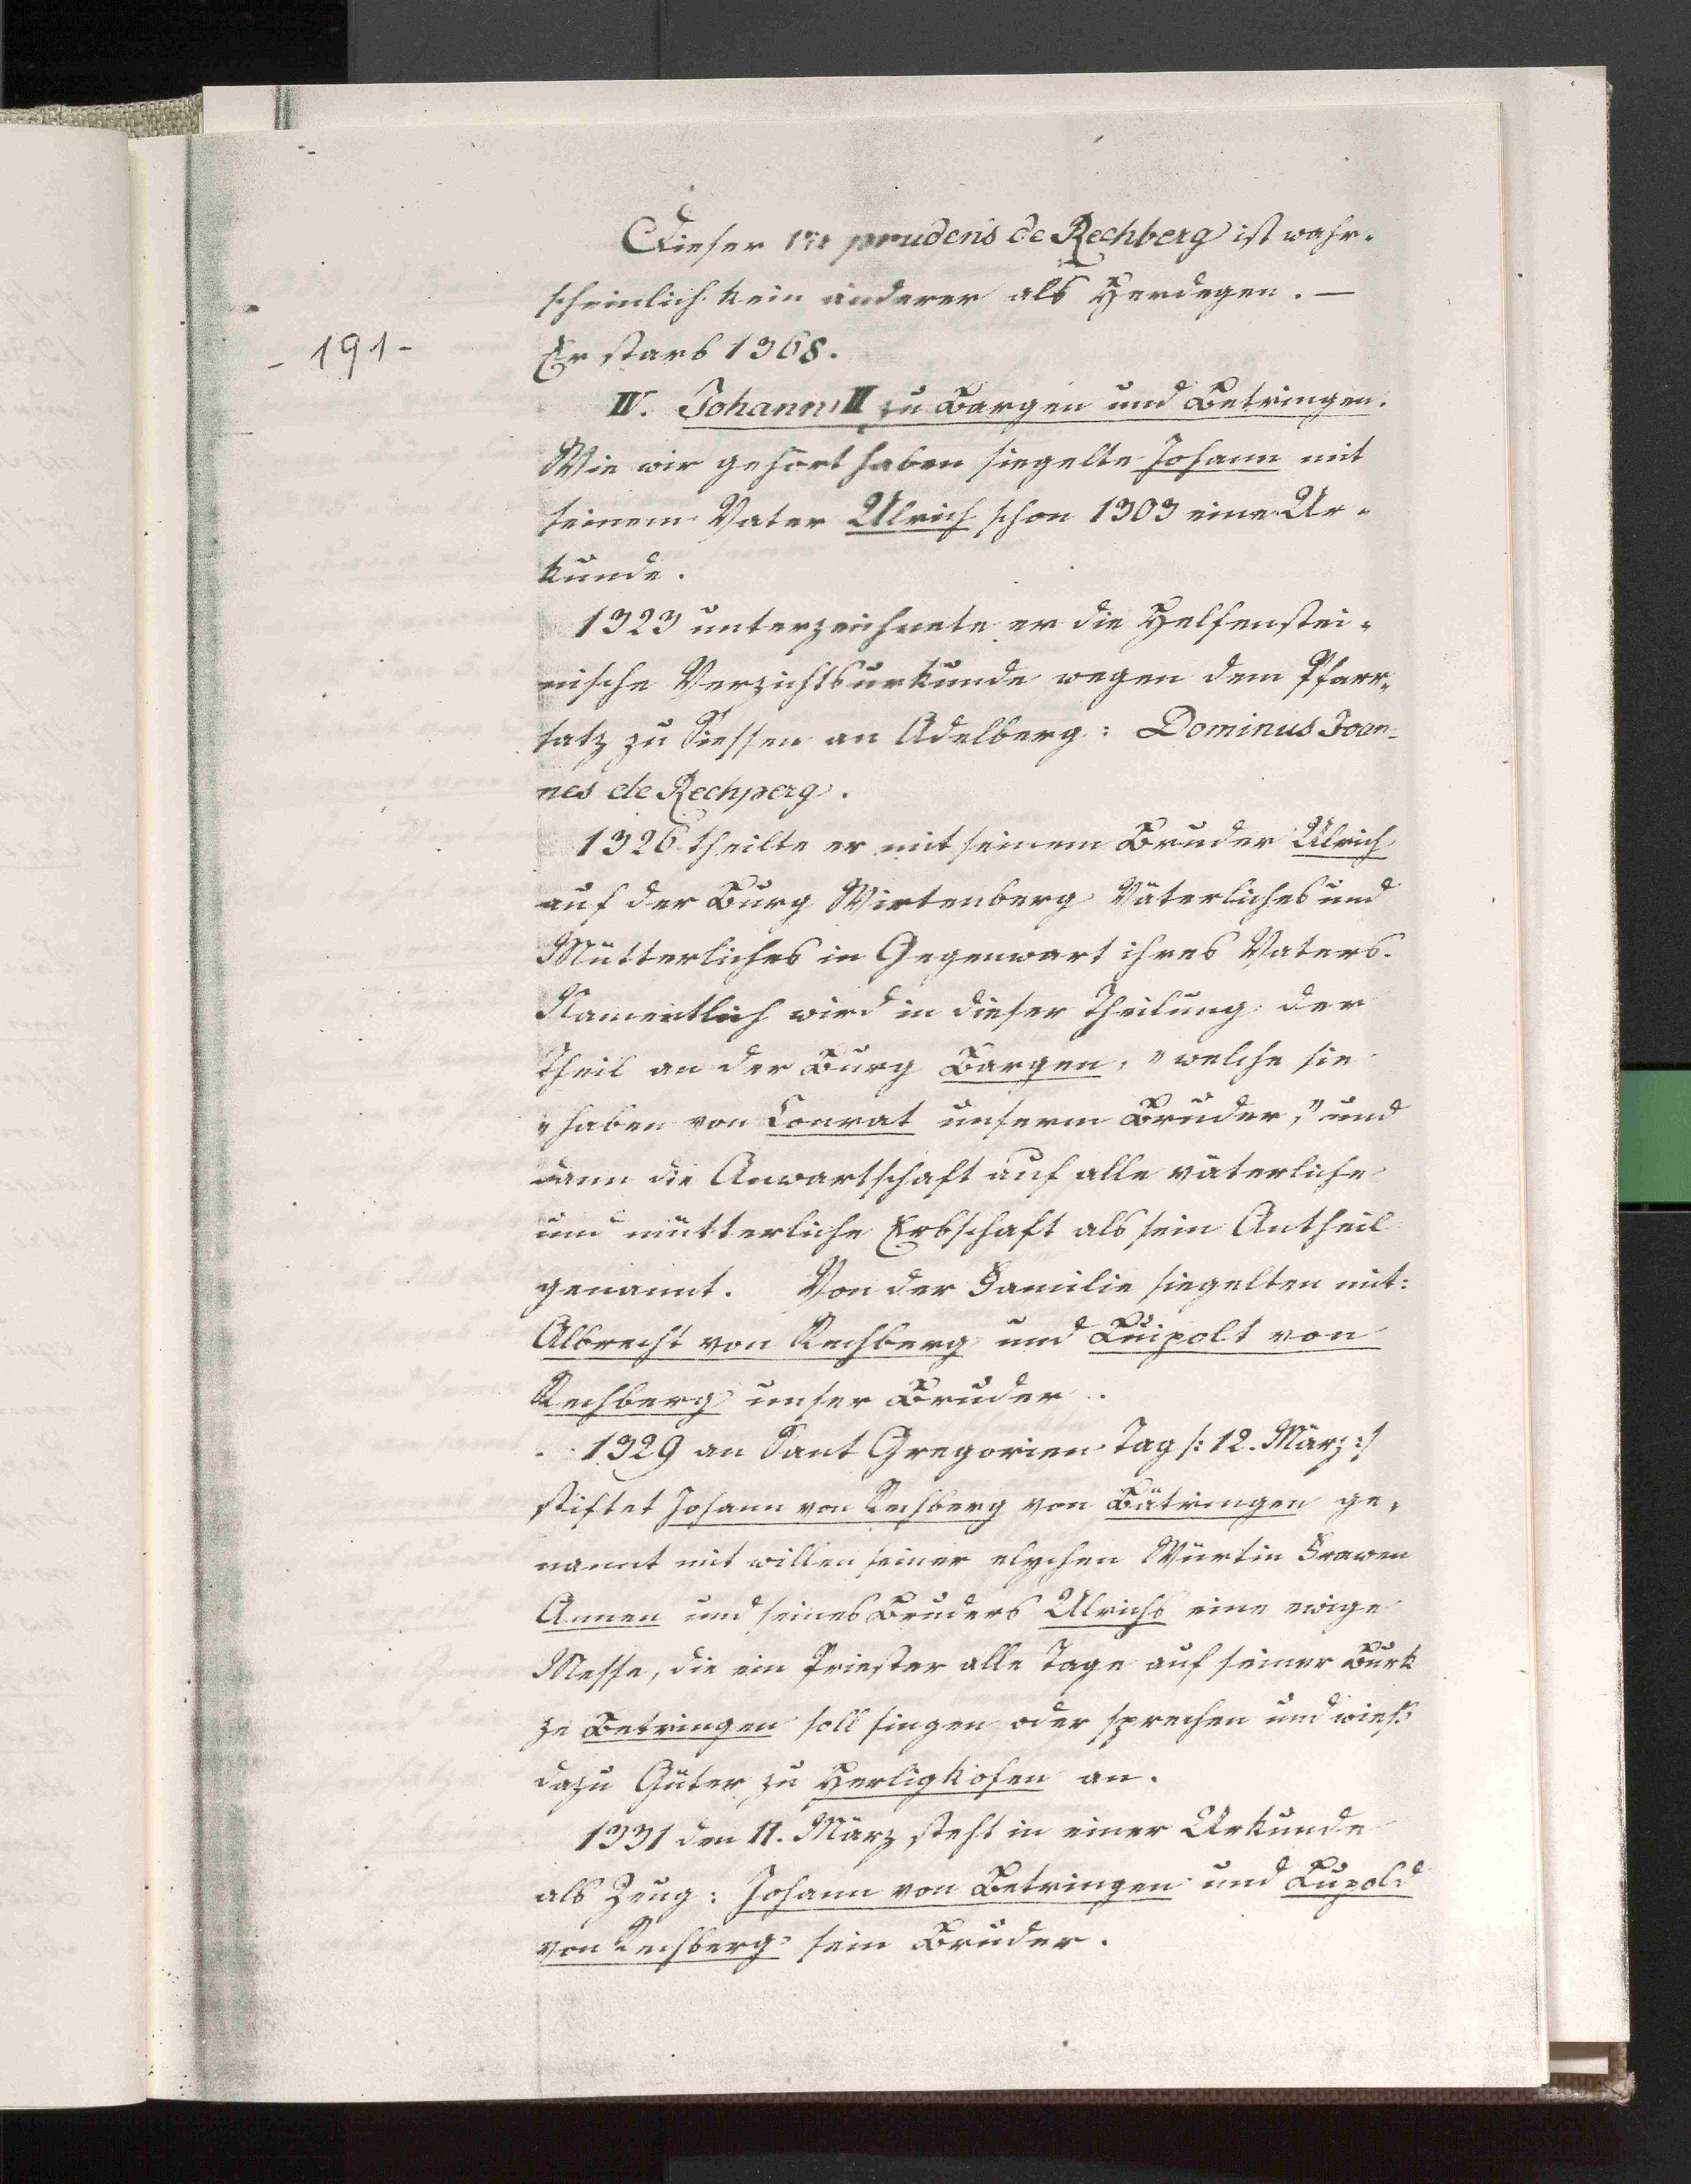 Dieser vir prudens de Rechberg ist wahr-
scheinlich kein anderer als Herdegen. —
- 191 -
Er starb 1368.
IV. Johann II zu Bargen und Betringen.
Wie wir gehört haben siegelte Johann mit
seinem Vater Ulrich schon 1303 eine Ur-
kunde.
1323 unterzeichnete er die Helfenstei-
nische Verzichtsurkunde wegen dem Pfarr-
satz zu Siessen an Adelberg: Dominus Joan-
nes de Rechperg.
1326 theilte er mit seinem Bruder Ulrich
auf der Burg Wirtenberg Väterliches und
Mütterliches in Gegenwart ihres Vaters.
Namentlich wird in dieser Theilung der
Theil an der Burg Bargen, "welche sie
"haben von Conrat unserm Bruder," und
dann die Anwartschaft auf alle väterliche
und mütterliche Erbschaft als sein Antheil
genannt. Von der Familie siegelten mit:
Albrecht von Rechberg und Luipolt von
Rechberg unser Bruder.
1329 an Sant Gregorien Tag /: 12. März :/
stiftet Johann von Rechberg von Bätringen ge-
nannt mit willen seiner elychen Würtin Frawen
Annen und seines Bruders Ulrichs eine ewige
Messe, die ein Priester alle Tage auf seiner Burk
ze Betringen soll singen oder sprechen und wies
dazu Güter zu Herligkofen an.
1331 den 11. März steht in einer Urkunde
als Zeug: Johann von Betringen und Lupold
von Rechberg sein Bruder.